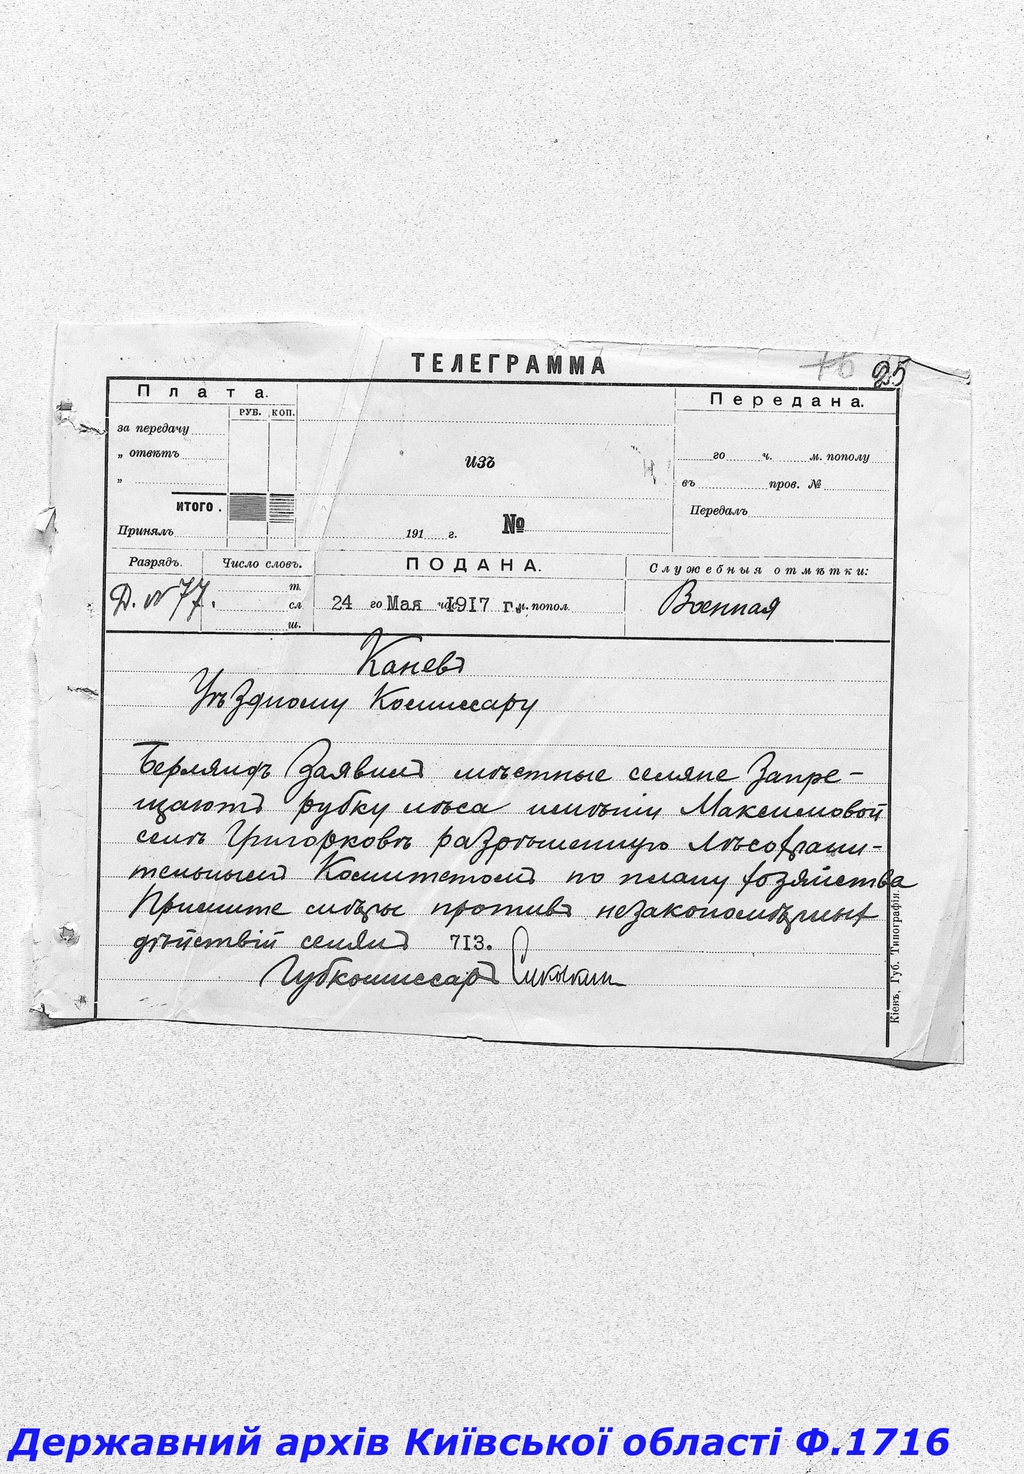 ТЕЛЕГРАММА
25
Плата.
РУБ. КОП.
за передачу
„ отвѣтъ
„
ИТОГО .
Принялъ
изъ
191 г. №
Передана.
го ч. м. пополу
въ пров. №
Передалъ
Разрядъ. Число словъ.
Д. № 77.
т.
сл
ш.
ПОДАНА.
24 го Мая 1917 г. м. попол.
Служебныя отмѣтки:
Военная
Каневъ
Уѣздному Комиссару
Берляндъ Заявилъ мѣстные селяне Запре-
щаютъ рубку лѣса имѣніи Максимовой
селѣ Григорковѣ разрѣшенную Лѣсохрани-
тельнымъ Комитетомъ по плану хозяйства
Примите мѣры противъ незакономѣрныхъ
дѣйствій селянъ 713.
Губкомиссаръ
Кіевъ, Губ. Типографія.
Державний архів Київської області Ф.1716